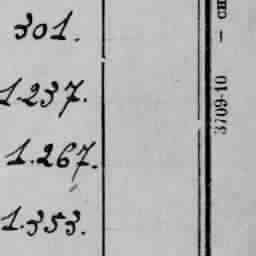 301.
1237.
1.267.
1.353.
3709-10